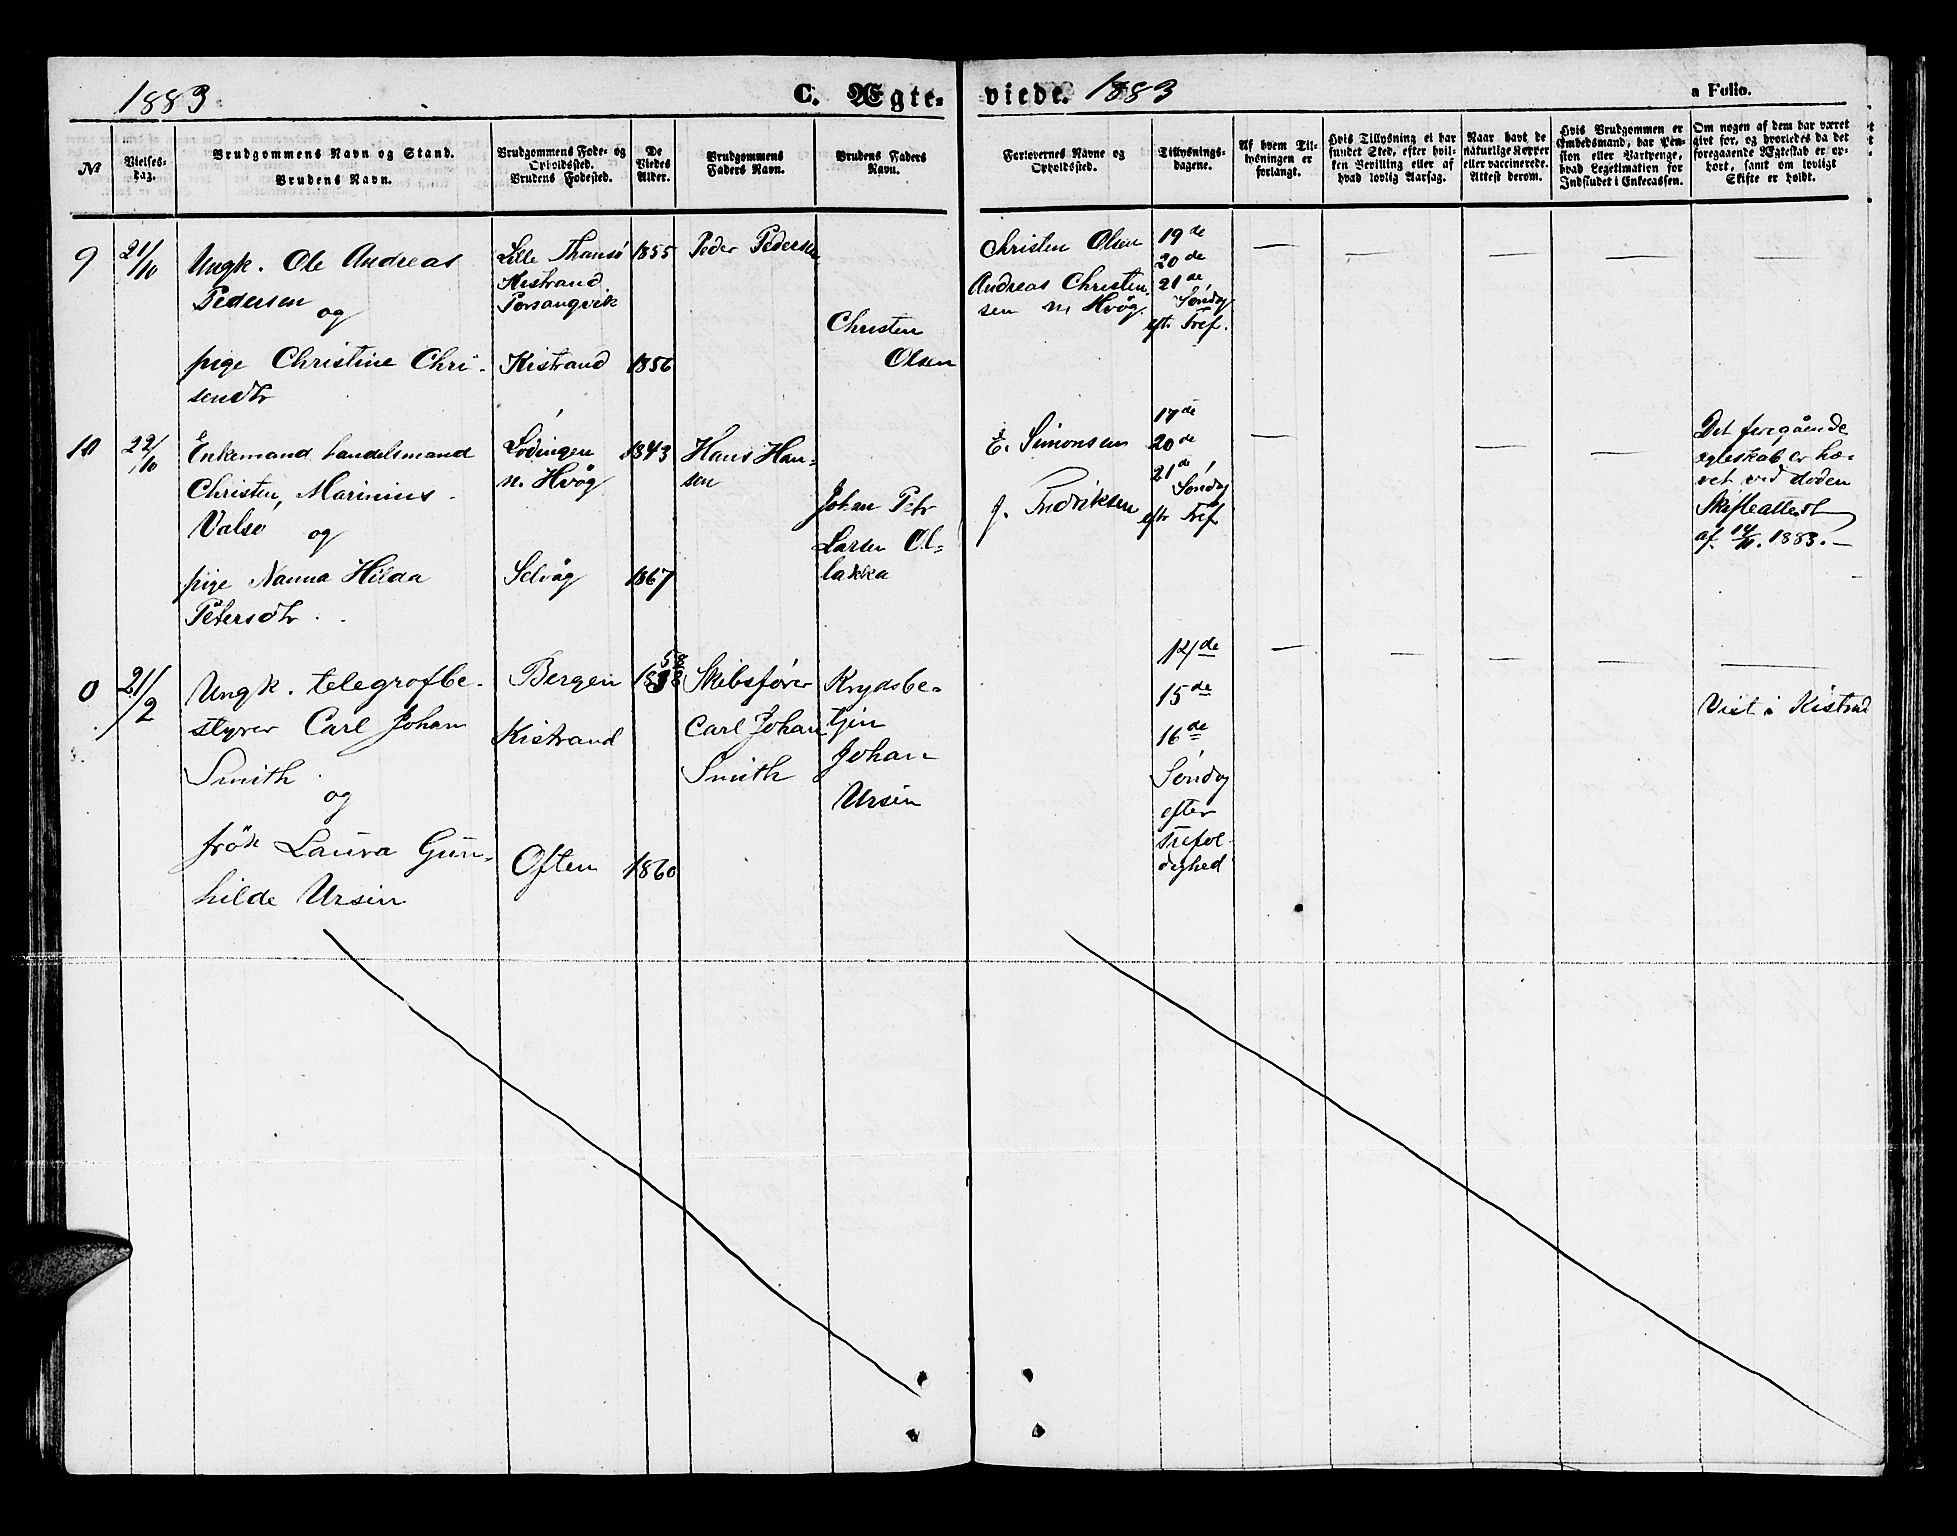 1883
C. Ægte-
viede. 1883
a Folio.
No
Vielses-
dag.
Brudgommens Navn og Stand.
Brudens Navn.
Brudgommens Føde- og
Opholdssted.
Brudens Fødested.
De
Viedes
Alder.
Brudgommens
Faders Navn.
Brudens Faders
Navn.
Forlovernes Navne og
Opholdssted.
Tillysnings-
dagene.
Af hvem Til-
lysningen er
forlangt.
Hvis Tillysning ei har
fundet Sted, efter hvil-
ken Bevilling eller af
hvad lovlig Aarsag.
Naar havt de
naturlige Kopper
eller vaccinerede.
Attest derom.
Hvis Brudgommen er
Embedsmand, har Pen-
sion eller Vartpenge,
hvad Legitimation for
Indskudet i Enkecassen.
Om nogen af dem har været
gift før, og hvorledes da det
foregaaende Ægteskab er op-
hørt, samt om lovligt
Skifte er holdt.
9
21/10
Ungk. Ole Andreas
Pedersen
og
pige Christine Chri-
sensdtr
Lille
Kistrand.
Porsangvik
Kistrand
1855
1856
Peder Pedersen
Christen
Olsen
Christen Olsen
Andreas Christen
sen
19de
20de
21de
Søndag
eft. Tref.
10
22/10
Enkemand handelsmand
Christen Marinius
Valsø
og
pige Nanna Hilda
Petersdtr
Lødingen
n. Hvåg
Selvåg
1843
1867
Hans Han-
sen
Johan Petr
Larsen Ol-
lakka
E. Simonsen
J. Fredriksen
17de
20de
21de
Søndag
eftr Tref
Det foregående
egteskab er hæ-
vet ved døden
Skifteattest
af 14/11. 1883.
0
21/2
Ungk. telegrafbe-
styrer Carl Johan
Smith
og
frøk Laura Gun-
hilde Ursin
Bergen
Kistrand
Often
1860
Skibsfører
Carl Johan
Smith
Krydsbe-
tjen
Johan
Ursin
12de
15de
16de
Søndag
efter
Trefol-
dighed
Viet i Kistrand